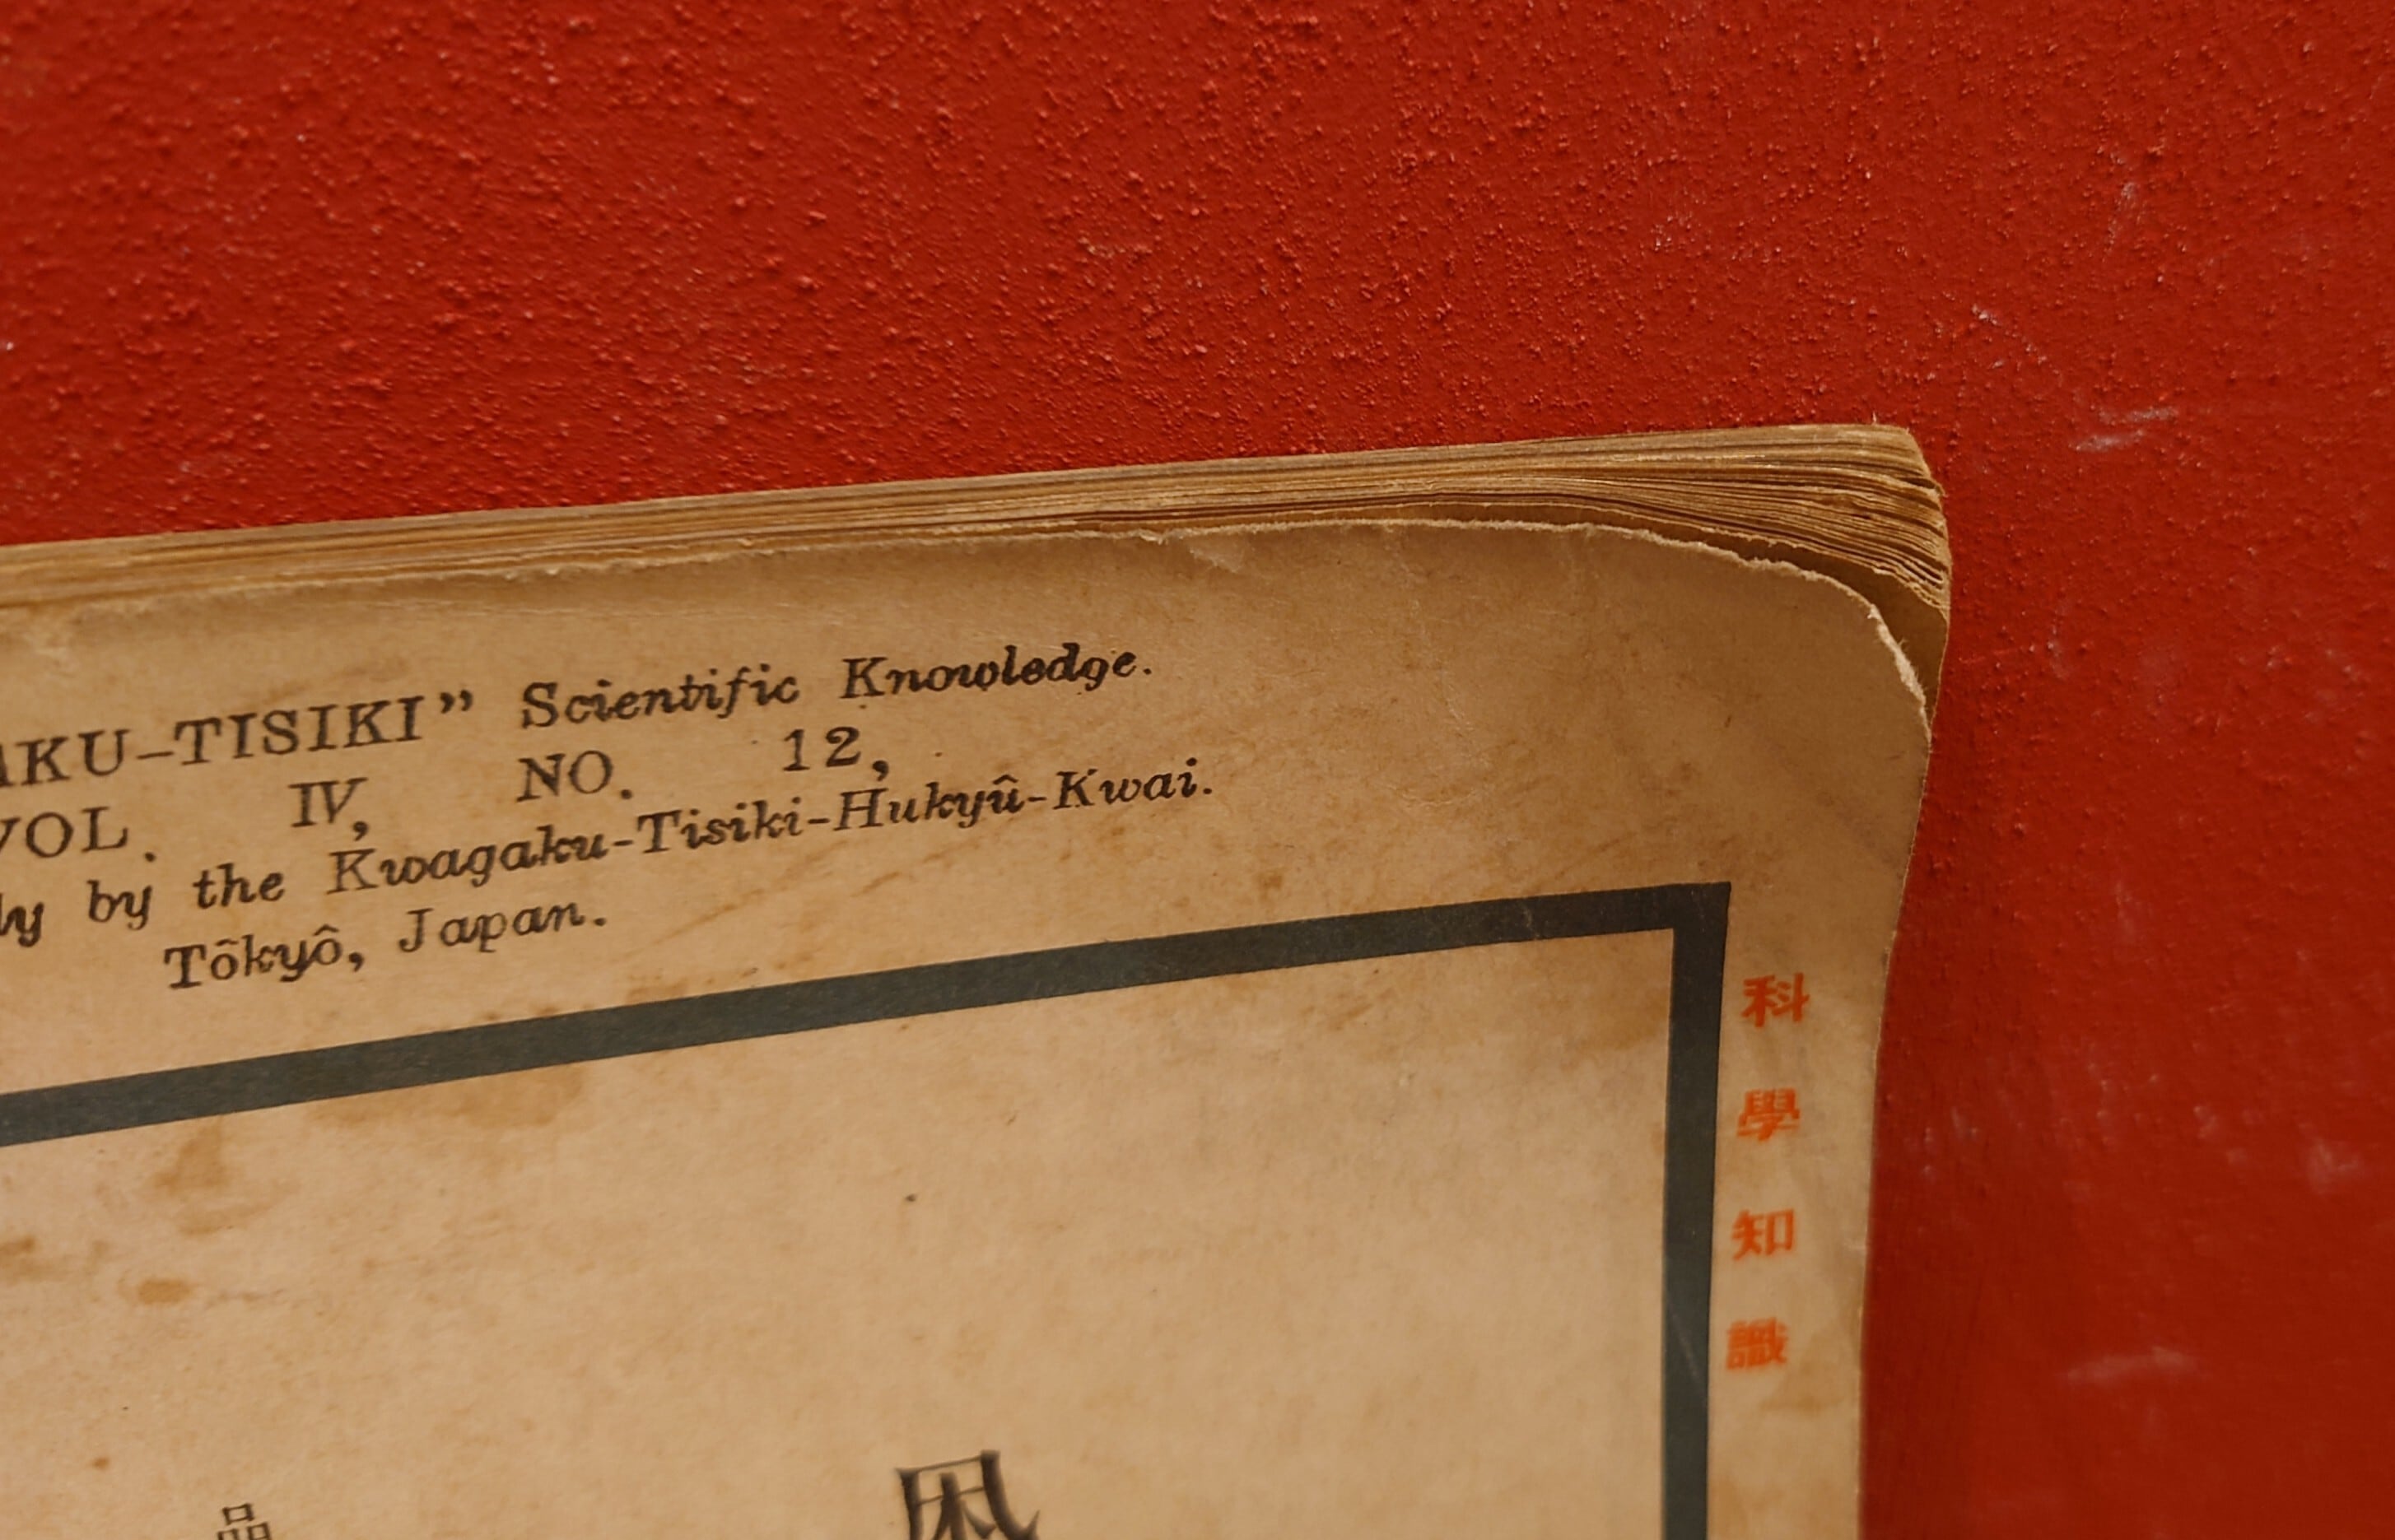 AKU-TISIKI” Scientific Knowledge.
VOL. IV, NO. 12,
by the Kwagaku-Tisiki-Hukyû-Kwai.
Tôkyô, Japan.
科學知識
品